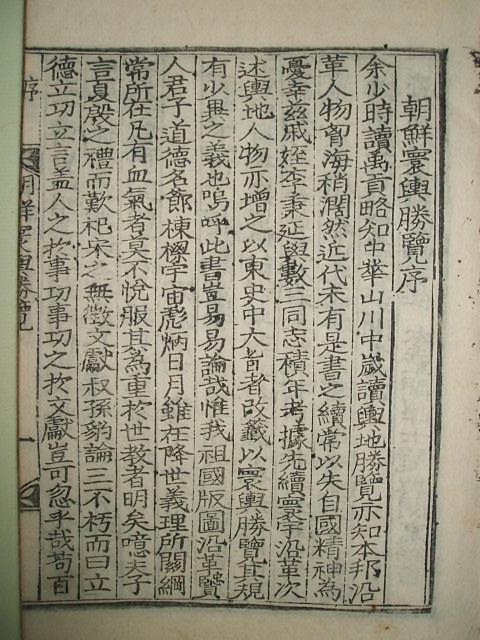 朝鮮寰輿勝覽序
余少時讀禹貢略知中華山川中歲讀輿地勝覽亦知本邦沿
革人物胷海稍濶然近代未有是書之續常以失自國精神爲
憂幸玆戚姪李秉延與數三同志積年考據先續寰宇沿革次
述輿地人物亦增之以東史中大旨者改籤以寰輿勝覽其規
有少異之義也嗚呼此書豈易易論哉惟我祖國版圖沿革賢
人君子道德名節棟樑宇宙彪炳日月雖在降世義理所關綱
常所在凡有血氣者莫不悅服其爲重於世敎者明矣噫夫子
言夏殷之禮而歎杞宋之無徵文獻叔孫豹論三不朽而曰立
德立功立言盖人之於事功事功之於文獻豈可忽乎哉苟百
序 朝鮮寰輿勝覽 一